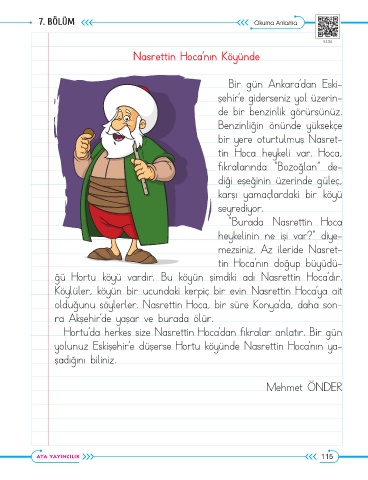 7. BÖLÜM
Okuma Anlama
Nasrettin Hoca'nın Köyünde
Bir gün Ankara'dan Eski-
şehir'e giderseniz yol üzerin-
de bir benzinlik görürsünüz.
Benzinliğin önünde yüksekçe
bir yere oturtulmuş Nasret-
tin Hoca heykeli var. Hoca,
fıkralarında "Bozoğlan" de-
diği eşeğinin üzerinde güleç,
karşı yamaçlardaki bir köyü
seyrediyor.
"Burada Nasrettin Hoca
heykelinin ne işi var?" diye-
mezsiniz. Az ileride Nasret-
tin Hoca'nın doğup büyüdü-
ğü Hortu köyü vardır. Bu köyün şimdiki adı Nasrettin Hoca'dır.
Köylüler, köyün bir ucundaki kerpiç bir evin Nasrettin Hoca'ya ait
olduğunu söylerler. Nasrettin Hoca, bir süre Konya'da, daha son-
ra Akşehir'de yaşar ve burada ölür.
Hortu'da herkes size Nasrettin Hoca'dan fıkralar anlatır. Bir gün
yolunuz Eskişehir'e düşerse Hortu köyünde Nasrettin Hoca'nın ya-
şadığını biliniz.
Mehmet ÖNDER
ATA YAYINCILIK
115